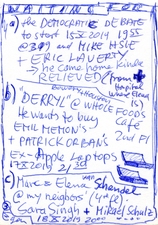 WAITING FOR
a) the DEMOCRATIC DEBATE
to start 15 X 2019 19 55
@ 399 and MIKE HSIE
+ ERIC LAVERTY
→ he came home kinda
RELIEVED (from
Hospital
where Elena
is)
b) "DERRYL" @ WHOLE FOODS
He wants to buy CAFÉ
EMIL MEMON'S 2nd Fl
+ PATRICK ORBAN'S
EX-Apple Laptops
17 X 2019 21 30
c) Marc & Elena von Schendel
@ my neighbors' (4th fl)
2) Sara Singh + Mikael Schulz
18 X 2019 2000